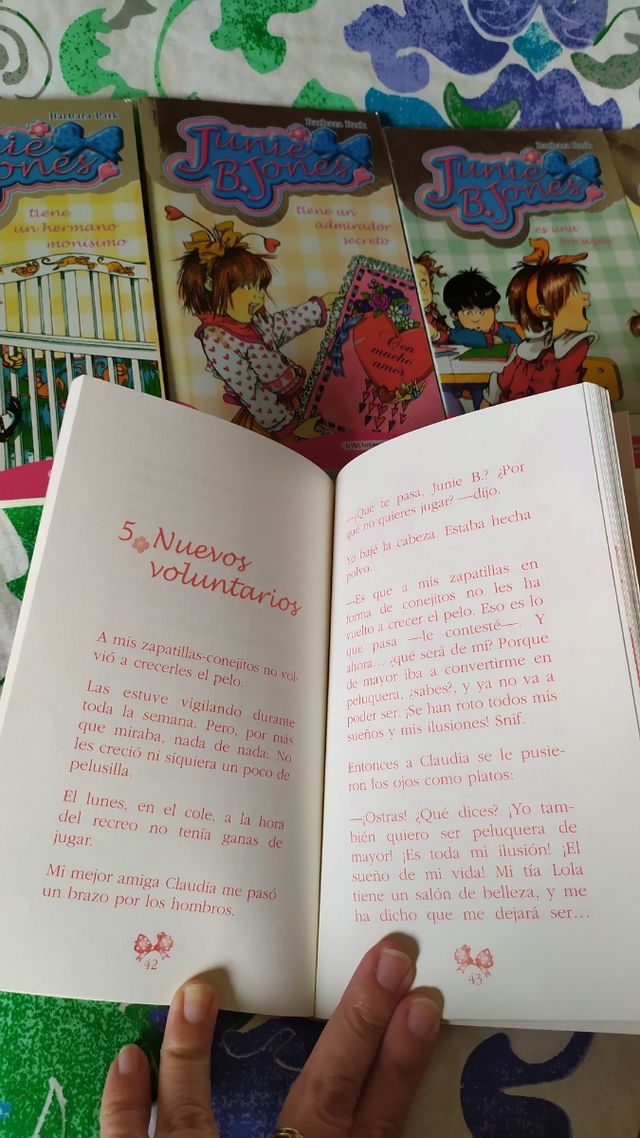 Barbara Park
Jones
tiene
un hermano
monísimo
Barbara Park
Junie
B. Jones
tiene un
admirador
secreto
Con
mucho
amor
Barbara Park
Junie
B. Jones
es una
bocazas
5 Nuevos
voluntarios
A mis zapatillas-conejitos no vol-
vió a crecerles el pelo.
Las estuve vigilando durante
toda la semana. Pero, por más
que miraba, nada de nada. No
les creció ni siquiera un poco de
pelusilla.
El lunes, en el cole, a la hora
del recreo no tenía ganas de
jugar.
Mi mejor amiga Claudia me pasó
un brazo por los hombros.
42
—¿Qué te pasa, Junie B.? ¿Por
qué no quieres jugar? —dijo.
Yo bajé la cabeza. Estaba hecha
polvo.
—Es que a mis zapatillas en
forma de conejitos no les ha
vuelto a crecer el pelo. Eso es lo
que pasa —le contesté—. Y
ahora... ¿qué será de mí? Porque
de mayor iba a convertirme en
peluquera, ¿sabes?, y ya no va a
poder ser. ¡Se han roto todos mis
sueños y mis ilusiones! Snif.
Entonces a Claudia se le pusie-
ron los ojos como platos:
—¡Ostras! ¿Qué dices? ¡Yo tam-
bién quiero ser peluquera de
mayor! ¡Es toda mi ilusión! ¡El
sueño de mi vida! Mi tía Lola
tiene un salón de belleza, y me
ha dicho que me dejará ser...
43